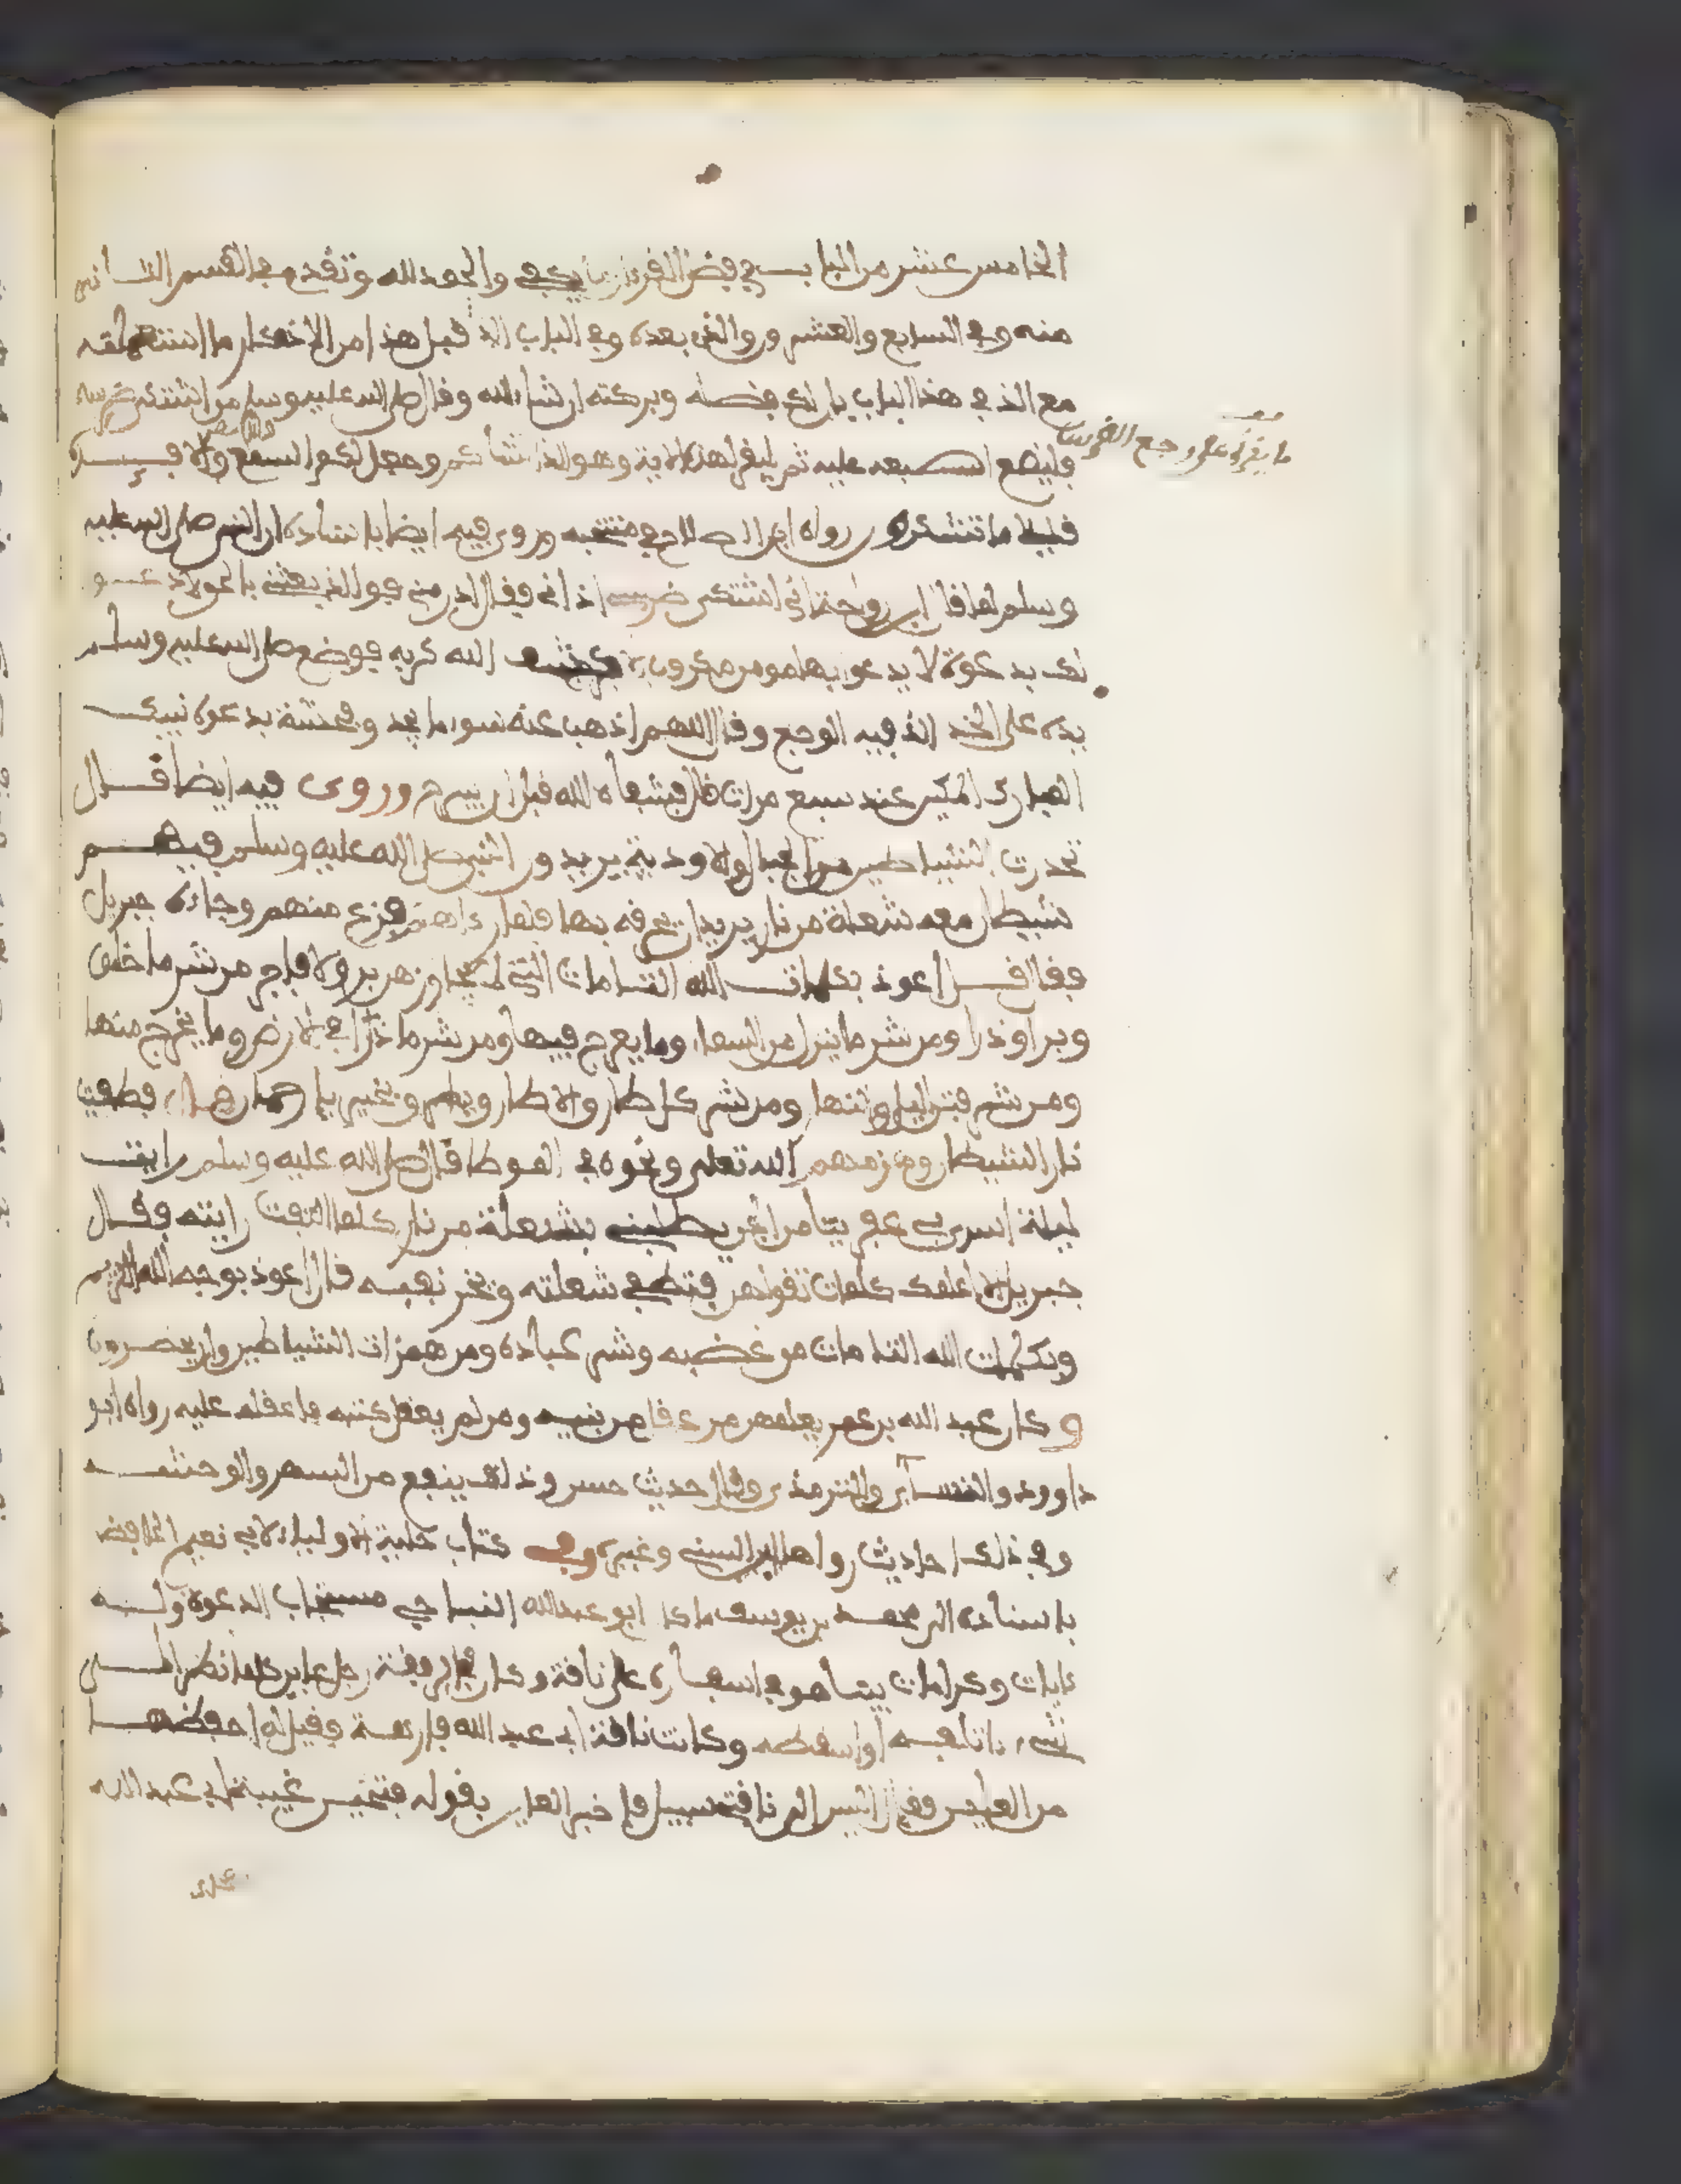 الخامس عشر من الباب في فضل القرءان ما يكفي والحمد لله وتقدم في القسم الثاني
منه وفي السابع والعشرين والذي بعده وفي الباب الذي قبل هذا من الاذكار ما ان استعملته
مع الذي في هذا الباب بان لك فضله وبركته ان شاء الله وقال صلى الله عليه وسلم من اشتكى ضرسه
ما يقرأ على وجع الضرس
فليضع اصبعه عليه ثم ليقرا هذه الاية وهو الذي انشاكم وجعل لكم السمع والابصار والافئدة
قليلا ما تشكرون رواه ابن الصلاح في منتخبه وروي فيه ايضا باسناده ان النبي صلى الله عليه
وسلم لما قال ابن رواحة اني اشتكي ضرسي اذاني فقال ادن مني فوالذي بعثني بالحق لادعون
لك بدعوة لا يدعو بها مومن مكروب الا كشف الله كربه فوضع صلى الله عليه وسلم
يده على الخد الذي فيه الوجع وقال اللهم اذهب عنه سوء ما يجد وفحشه بدعوة نبيك
المبارك المكين عندك سبع مرات قال فشفاه الله قبل ان يبرح وروى فيه ايضا قال
تحدرت الشياطين من الجبال والاودية يريدون النبي صلى الله عليه وسلم فيهم
شيطان معه شعلة من نار يريد ان يحرقه بها فلما رءاهم فزع منهم وجاءه جبريل
فقال قل اعوذ بكلمات الله التامات التي لا يجاوزهن بر ولا فاجر من شر ما خلق
وبرا وذرا ومن شر ما ينزل من السماء وما يعرج فيها ومن شر ما ذرا في الارض وما يخرج منها
ومن شر فتن الليل والنهار ومن شر كل طارق الا طارق يطرق بخير يا رحمان قال فطفئت
نار الشيطان وهزمهم الله تعلى ونحوه في الموطا قال صلى الله عليه وسلم رايت
ليلة اسري بي عفريتا من الجن يطلبني بشعلة من نار كلما التفت رايته فقال
جبريل الا اعلمك كلمات تقولهن فتطفى شعلته ويخر لفيه قال اعوذ بوجه الله الكريم
وبكلمات الله التامات من غضبه وشر عباده ومن همزات الشياطين وان يحضرون
وكان عبد الله بن عمر يعلمهن من عقل من بنيه ومن لم يعقل كتبه فاعقله عليه رواه ابو
داوود والنسائي والترمذي وقال حديث حسن وذلك ينفع من السهر والوحشة
وفي ذلك احاديث رواها ابن السني وغيره وفي كتاب حلية الاولياء لابي نعيم الحافظ
باسناده الى محمد بن يوسف قال كان ابو عبد الله النباجي مستجاب الدعوة وله
ءايات وكرامات بينما هو في اسفاره على ناقة وكان في الرفقة رجل عاين كلما نظر الى
شيء اتلفه او اسقطه وكانت ناقة ابي عبد الله فارهة فقيل له احفظها
من العاين فقال ليس له الى ناقتي سبيل فاخبر العاين بقوله فتخير غيبة ابي عبد الله